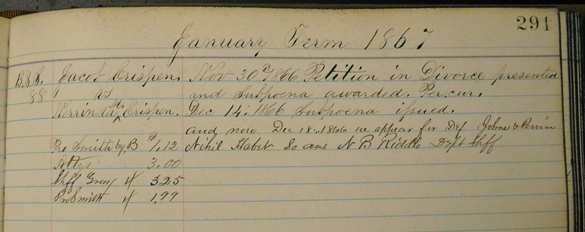 291
January Term 1867
B.S.S. Jacob Crispen. Nov 30th 1866 Petition in Divorce presented
88 vs and Subpoena awarded. Per cur.
M. Crispen. Dec 14. 1866 Subpoena issued.
and now Dec 18. 1866 appear for Def
Smith by B 1.12 Nihil Habet So ans N B Dept Shff
3.00
Shff Gray 3.25
Smith 1.99